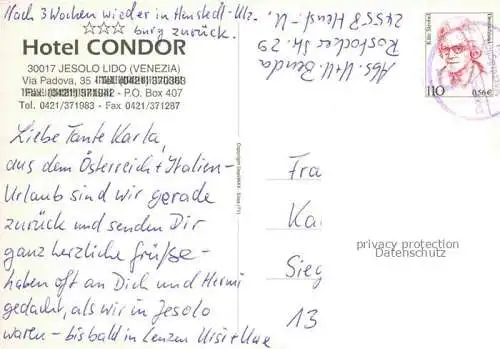 Nach 3 Wochen wieder in Henstedt-Ulz-
burg zurück.
Hotel CONDOR
30017 JESOLO LIDO (VENEZIA)
Via Padova, 35
- P.O. Box 407
Tel. 0421/371983 - Fax 0421/371287
Liebe Tante Karla,
aus dem Österreich + Italien-
Urlaub sind wir gerade
zurück und senden Dir
ganz herzliche Grüße -
haben oft an Dich und Hermi
gedacht, als wir in Jesolo
waren - bis bald in Lenzen Ursi + Uwe
Abs. U + U. Benda
Rostocker Str. 29
24558 Henst.-U.
110
0,56€
Fra
Ka
Sieg
13
privacy protection
Datenschutz